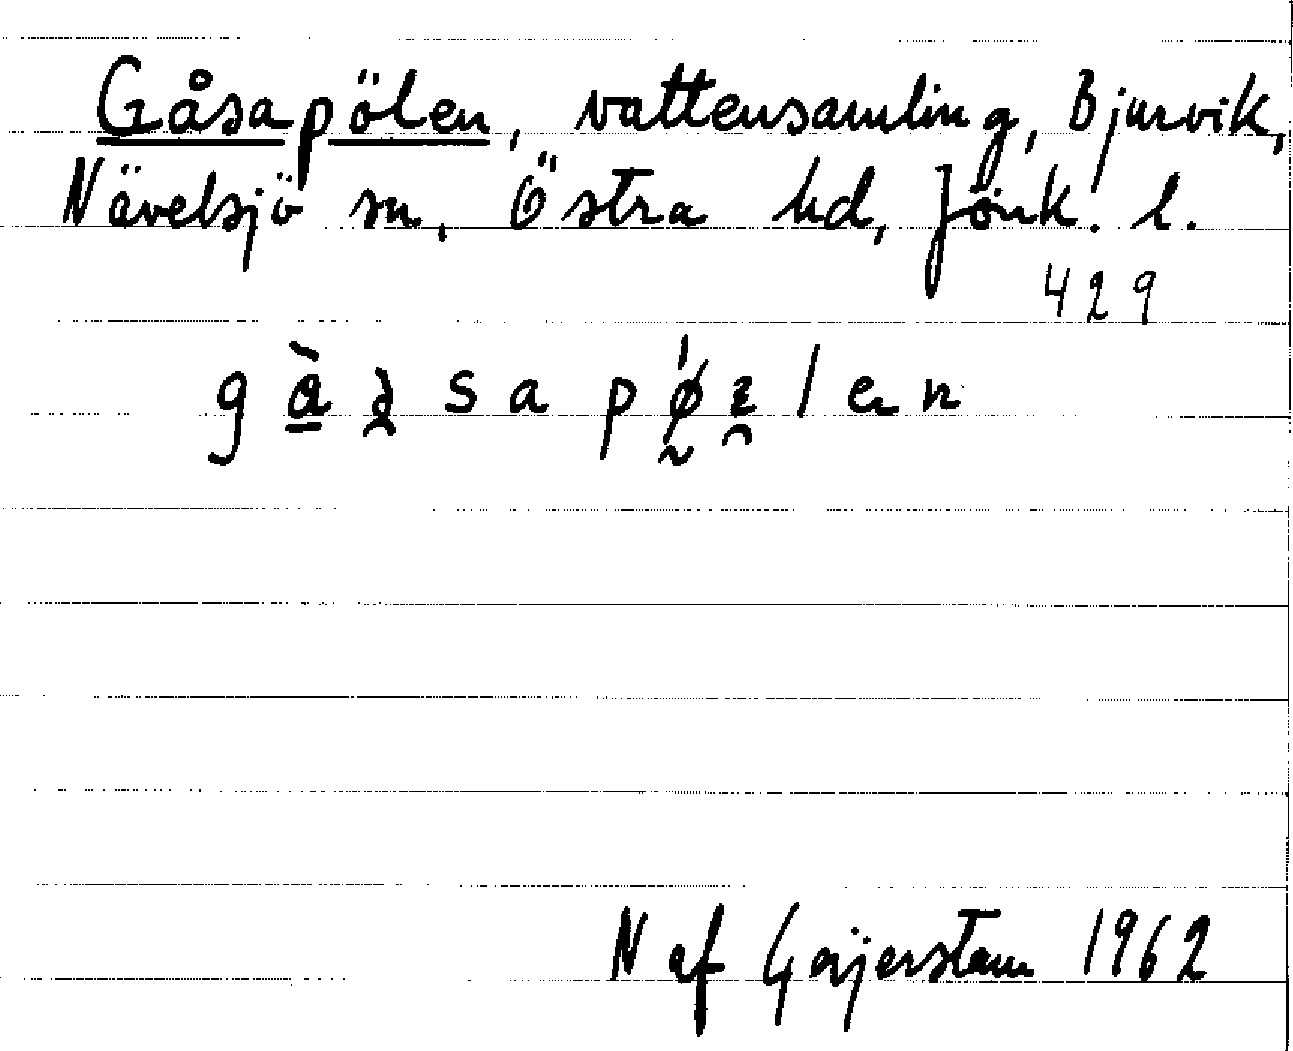 Gåsapölen, vattensamling, Bjurvik,
Nävelsjö sn, Östra hd, Jönk. l.
429
N af Geijerstam 1962